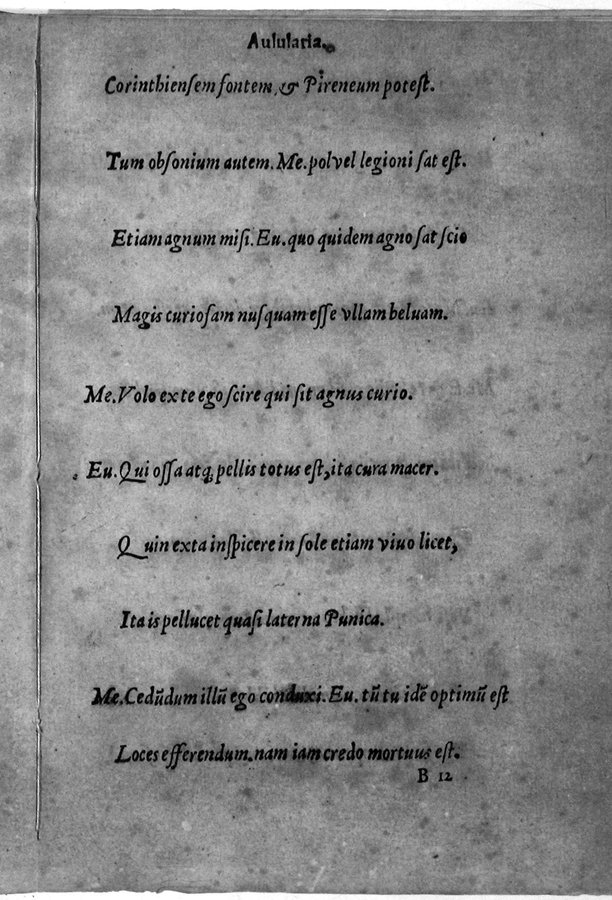 Aulularia.
Corinthiensem fontem, & Pireneum potest.
Tum obsonium autem. Me. pol vel legioni sat est.
Etiam agnum misi. Eu. quo quidem agno sat scio
Magis curiosam nusquam esse vllam beluam.
Me. Volo ex te ego scire qui sit agnus curio.
Eu. Qui ossa atq; pellis totus est, ita cura macer.
Quin exta inspicere in sole etiam viuo licet,
Ita is pellucet quasi laterna Punica.
Me. Cedūdum illū ego conduxi. Eu. tū tu idē optimū est
Loces efferendum. nam iam credo mortuus est.
B 12